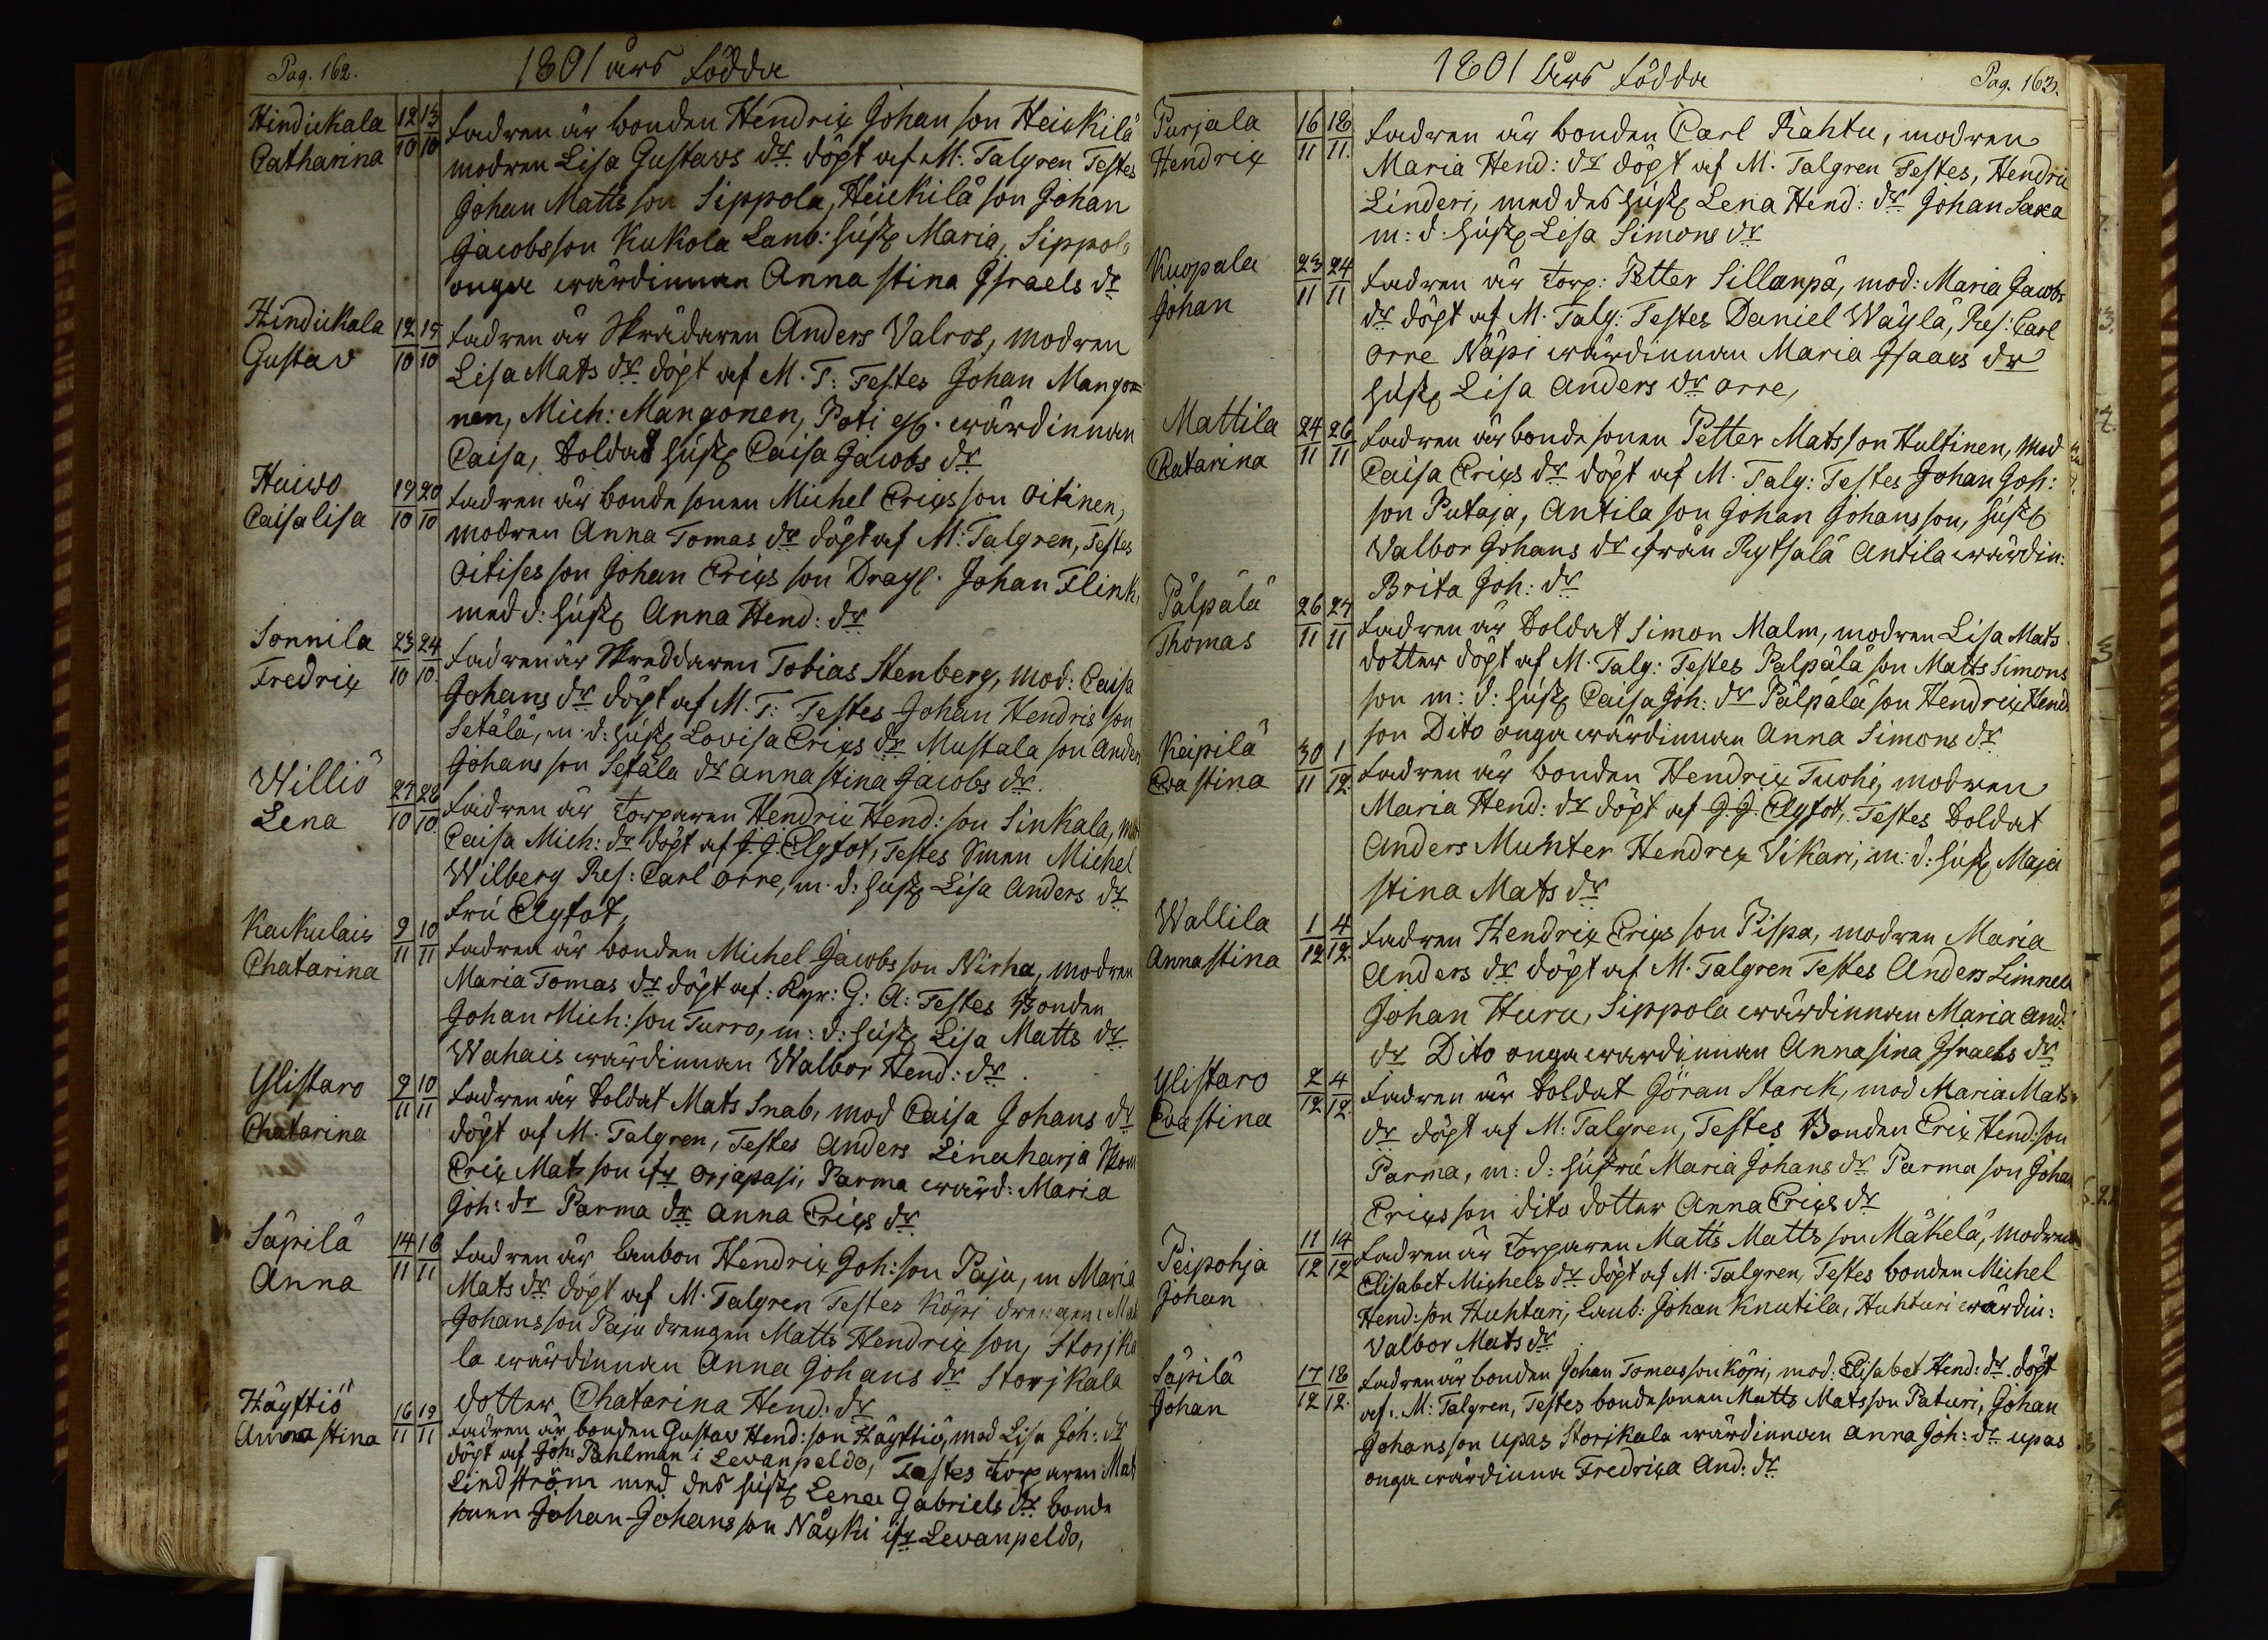 Pag. 162.
1801 års Födda
Hindickala 12/10 13/10 Fadren är bonden Hendrix Johan son Heickilä
Catharina modren Lisa Gustavs dr. döpt af M. Talgren Testes
Johan Matts son Sippola, Heickilä son Johan
Jacobsson Kukola Lanb: hust. Maria, Sippola
onga wärdinnan Anna stina Israels dr
Hindickala 12/10 15/10 Fadren är Skrädaren Anders Valros, modren
Gustav Lisa Mats dr. döpt af M. T: Testes Johan Mango=
nen, Mich: Mangonen, Poti wärdinnan
Caisa, Soldat hust. Caisa Jacobs dr
Huiwo 19/10 20/10 Fadren är bonde sonen Michel Erics son Oitinen,
Caisalisa modren Anna Tomas dr döpt af M: Talgren, Testes
Oitises son Johan Erics son Drag. Johan Flink,
med d: hust. Anna Hend: dr
Sonnila 23/10 24/10 Fadren är Skreddaren Tobias Stenberg, mod: Caisa
Fredrix Johans dr döpt af M. T: Testes Johan Hendris son
Setälä, m: d: hust. Lovisa Erics dr Mustala son Anders
Johans son Setäla dr Anna stina Jacobs dr.
Williö 27/10 28/10 Fadren är Torparen Hendrix Hend: son Sinkala, mod
Lena Caisa Mich: dr döpt af J. J. Elgfot, Testes Smen Michel
Wilberg Res: Carl Orre, m. d: hust. Lisa Anders dr
Fru Elgfot,
Kackulais 9/11 10/11 Fadren är bonden Michel Jacobs son Nirha, modren
Chatarina Maria Tomas dr döpt af: Kyr: G: A: Testes Bonden
Johan Mich: son Turro, m: d: hust. Lisa Matts dr
Wahais wärdinnan Walbor Hend: dr.
Ylistaro 9/11 10/11 Fadren är Soldat Mats Snab, mod Caisa Johans dr
Chatarina döpt af M. Talgren, Testes Anders Linaharja Skom
Erix Mats son ifr Orjapasi, Parma wärd: Maria
Joh: dr Parma dr Anna Erics dr
Säpilä 14/11 16/11 Fadren är Lanbon Hendrix Joh: son Paju, m Maria
Anna Mats dr döpt af M. Talgren Testes Köpi drengen Mats
Johans son Paju drengen Matts Hendrix son, Storjka
la wärdinnan Anna Johans dr Storjkala
dotter Chatarina Hend: dr
Häyttiö 16/11 19/11 Fadren är bonden Gustav Hend: son Häyttiö, mod Lisa Joh: dr
Anna stina döpt af Joh: Pahlman i Levanpeldo, Testes Torparen Mats
Lindström med des hust. Lena Gabriels dr bonde
sonen Johan Johans son Näyki ifr Levanpeldo,
1801 Års Födda
Pag. 163.
Purjala 16/11 18/11 Fadren är bonden Carl Rahtu, modren
Hendrix Maria Hend: dr döpt af M. Talgren Testes, Hendric
Linderi, med des hust. Lena Hend: dr Johan Saxa
m: d: hust. Lisa Simons dr
Kuopala 23/11 24/11 Fadren är Torp: Petter Sillanpä, mod: Maria Jacobs
Johan dr döpt af M. Talg: Testes Daniel Wäylä, Res: Carl
Orre Näpi wärdinnan Maria Isaacs dr
hust. Lisa Anders dr Orre,
Mattila 24/11 26/11 Fadren är bonde sonen Petter Mats son Hultinen, mod
Catarina Caisa Erics dr döpt af M. Talg: Testes Johan Joh:
son Putaja, Antila son Johan Johans son, hust.
Valbor Johans dr från Rytsalä Antila wärdin:
Brita Joh: dr
Pälpälä 26/11 27/11 Fadren är Soldat Simon Malm, modren Lisa Mats
Thomas dotter döpt af M. Talg: Testes Palpälä son Matts Simons
son m: d: hust. Caisa Joh: dr Pälpälä son Hendrix Hend
son Dito onga wärdinnan Anna Simons dr
Keipilä 30/11 1/12 Fadren är bonden Hendrix Tuohi, modren
Eva stina Maria Hend: dr döpt af J. J. Elgfot, Testes Soldat
Anders Munter Hendrix Vikari, m: d: hust. Maja
stina Mats dr
Wallila 1/12 4/12 Fadren Hendrix Erics son Pispa, modren Maria
Anna stina Anders dr döpt af M. Talgren Testes Anders Limnell
Johan Huru, Sippola wärdinnan Maria And:
dr Dito onga wardinnan Annasina Israels dr
Ylistaro 2/12 4/12 Fadren är Soldat Göran Starck, mod Maria Mats
Eva stina dr döpt af M: Talgren, Testes Bonden Erix Hend: son
Parma, m: d: hustru Maria Johans dr Parma son Johan
Erics son dito dotter Anna Erics dr
Peipohja 11/12 14/12 Fadren är Torparen Matts Matts son Mäkelä, modren
Johan Elisabet Michels dr döpt af M. Talgren, Testes bonden Michel
Hend: son Huhturi, Lanb: Johan Knutila, Huhturi wärdin:
Valbor Mats dr
Säpilä 17/12 18/12 Fadren är bonden Johan Tomas son Köpi, mod: Elisabet Hend: dr döpt
Johan af: M: Talgren, Testes bonde sonen Matts Matsson Paturi, Johan
Johans son Upas Storjkala wärdinnan Anna Joh: dr Upas
onga wärdinna Fredrica And: dr